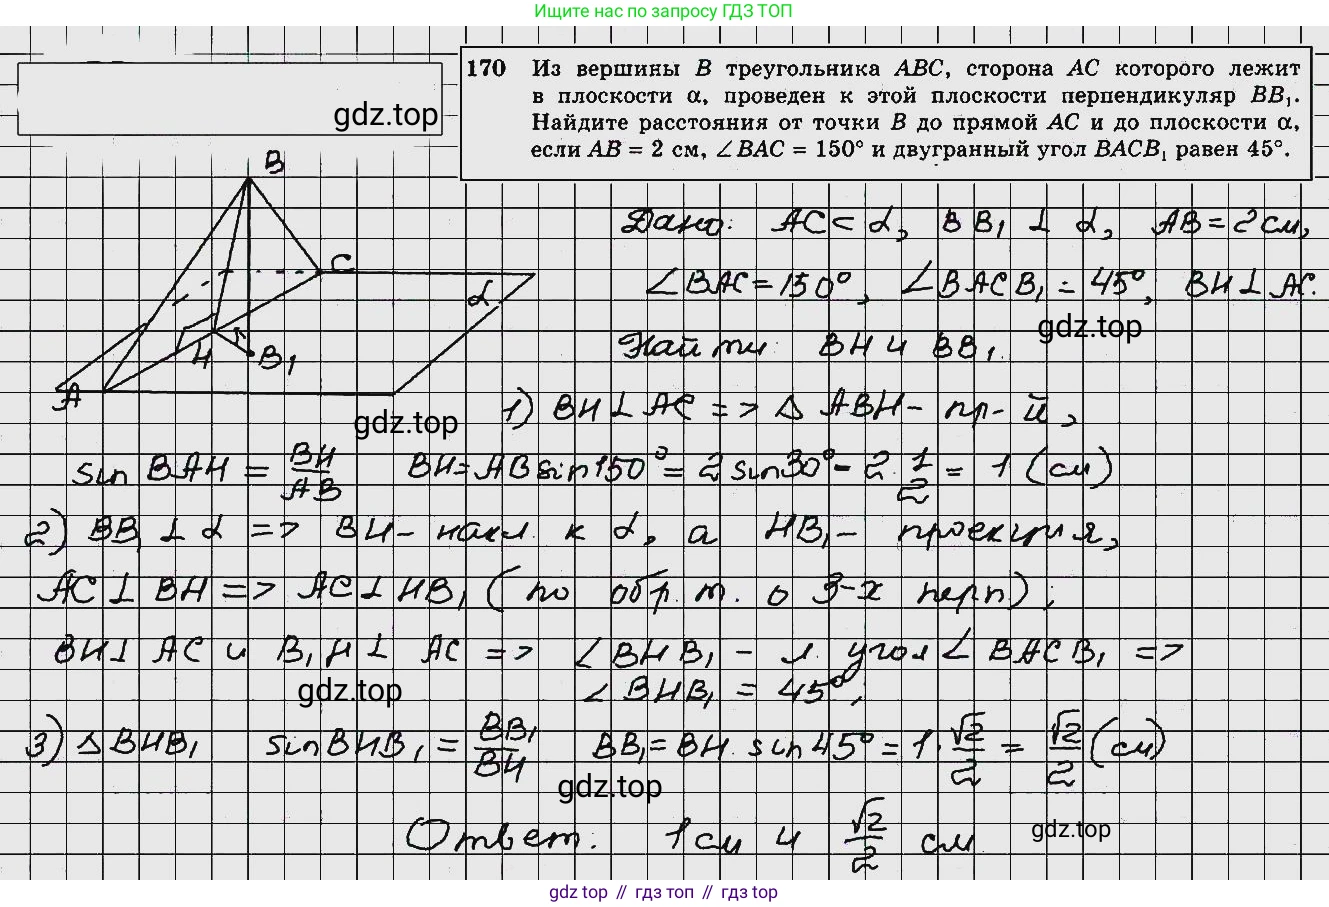 Ищите нас по запросу ГДЗ ТОП
gdz.top
170 Из вершины B треугольника ABC, сторона AC которого лежит
в плоскости α, проведен к этой плоскости перпендикуляр BB₁.
Найдите расстояния от точки B до прямой AC и до плоскости α,
если AB = 2 см, ∠BAC = 150° и двугранный угол BACB₁ равен 45°.
B
C
α
H
B₁
A
Дано: AC ⊂ α, BB₁ ⊥ α, AB = 2 см,
∠BAC = 150°, ∠BACB₁ = 45°, BH ⊥ AC.
gdz.top
Найти: BH и BB₁.
1) BH ⊥ AC => △ ABH - пр-й,
gdz.top
sin BAH = BH/AB BH = AB sin 150° = 2 sin 30° = 2 · 1/2 = 1 (см)
2) BB₁ ⊥ α => BH - накл. к α, а HB₁ - проекция,
AC ⊥ BH => AC ⊥ HB₁ (по обр. т. о 3-х перп);
BH ⊥ AC и B₁H ⊥ AC => ∠BHB₁ - л. угол ∠BACB₁ =>
gdz.top
∠BHB₁ = 45°;
3) △ BHB₁ sin BHB₁ = BB₁/BH BB₁ = BH · sin 45° = 1 · √2/2 = √2/2 (см)
gdz.top
Ответ: 1 см и √2/2 см
gdz.top
gdz top // гдз топ // gdz top